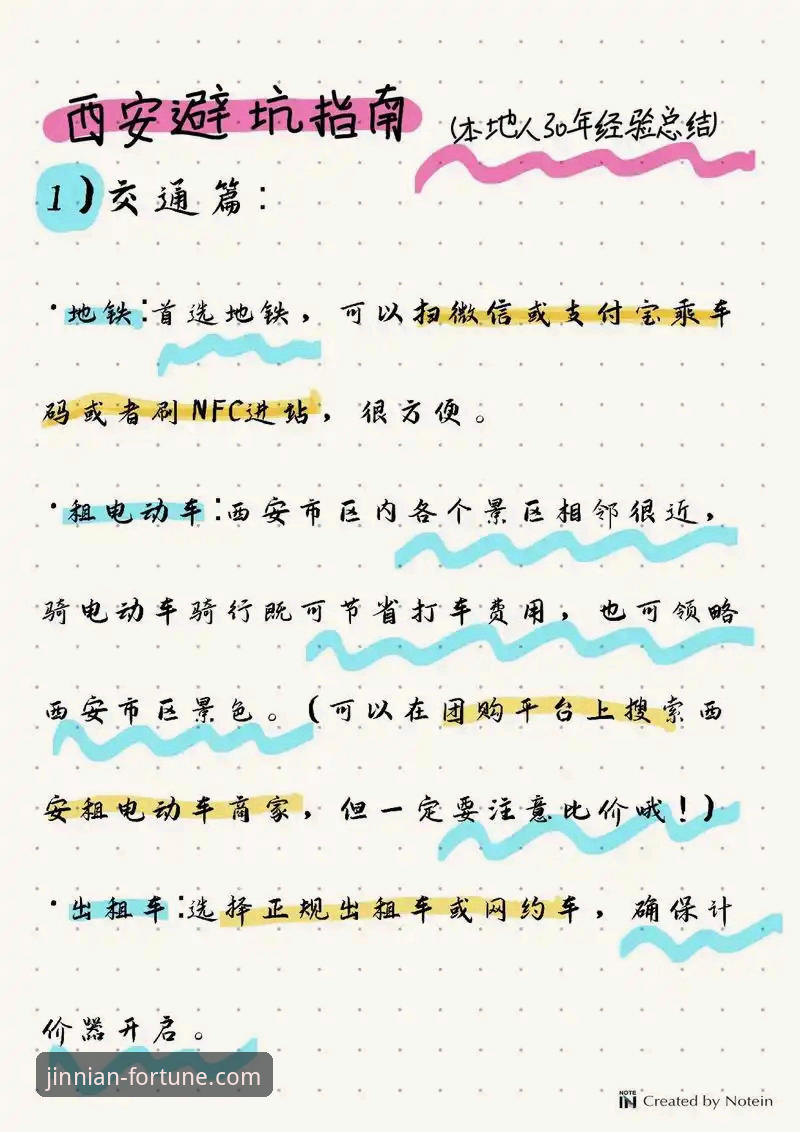 西安避坑指南 (本地人30年经验总结)
1)交通篇:
·地铁:首选地铁,可以扫微信或支付宝乘车
码或者刷NFC进站,很方便。
·租电动车:西安市区内各个景区相邻很近,
骑电动车骑行既可节省打车费用,也可领略
西安市区景色。(可以在团购平台上搜索西
安租电动车商家,但一定要注意比价哦!)
·出租车:选择正规出租车或网约车,确保计
价器开启。
jinnian-fortune.com
NOTE IN Created by Notein